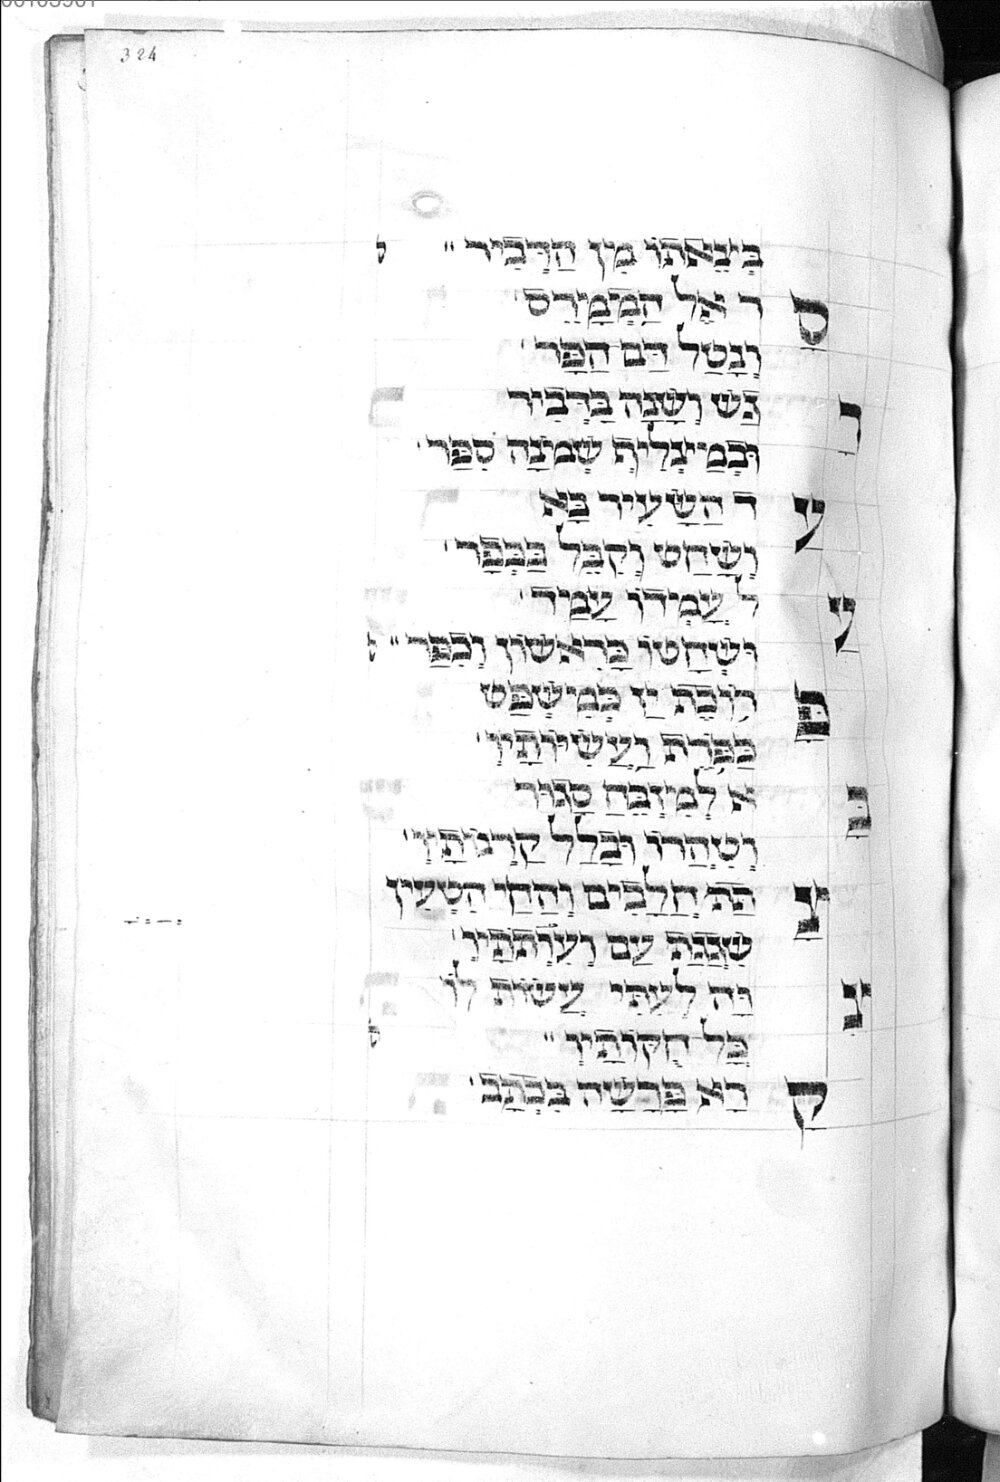 324
בְּיצָאתוֹ מִן הַדְּבִיר ״
סָר אֶל הַמְּמָרֵס ׳
וְנָטַל דַּם הַפָּר ׳
רָגַשׁ וְשָׁנָה בַּדְּבִיר
וּבְמַיצְלִית שְׁמֹנָה סִפֵּר ׳
עָד הַשָּׂעִיר בָּא
וְשָׁחַט וְקִבֵּל בַּכְּפָר ׳
עַל עָמְידוֹ עָמַד ׳
וּשְׁחָטוֹ כָּרִאשׁוֹן וְכִפֵּר ״
פָּרוֹכֶת יַז כְּמִישְׁפַּט
כַּפֹּרֶת וַעֲשִׂיּוֹתָיו ׳
בָּא לְמִזְבֵּחַ סָגוּר
וְטִהֲרוֹ וּבָלַל קַרְנוֹתָיו ׳
צִתַּת חֲלָבִים וְהַחַי הִטְעִין
שִׁגְגַת עַם וְעִוְתָתָיו ׳
צִוָּה לְעִתִּי עֲשׂוֹת לוֹ
כָּל חֻקּוֹתָיו ״
קָרָא בְּפָרָשָׁה כַּכְּתָב ׳